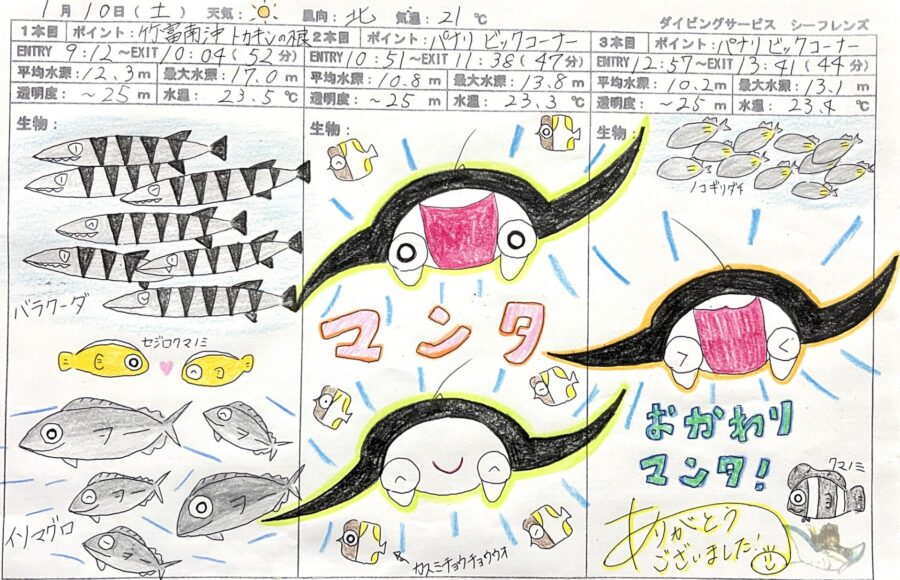 1月10日(土) 天気: 風向: 北 気温: 21℃
ダイビングサービス シーフレンズ
1本目 ポイント: 竹富南沖 トカキンの根
ENTRY 9:12～EXIT 10:04(52分)
平均水深: 12.3m 最大水深: 17.0m
透明度: ～25m 水温: 23.5℃
生物:
バラクーダ
セジロクマノミ
イソマグロ
2本目 ポイント: パナリ ビックコーナー
ENTRY 10:51～EXIT 11:38(47分)
平均水深: 10.8m 最大水深: 13.8m
透明度: ～25m 水温: 23.3℃
生物:
マンタ
カスミチョウチョウウオ
3本目 ポイント: パナリ ビックコーナー
ENTRY 12:57～EXIT 13:41(44分)
平均水深: 10.2m 最大水深: 13.1m
透明度: ～25m 水温: 23.4℃
生物:
ノコギリダイ
おかわり
マンタ!
クマノミ
ありがとう
ございました!